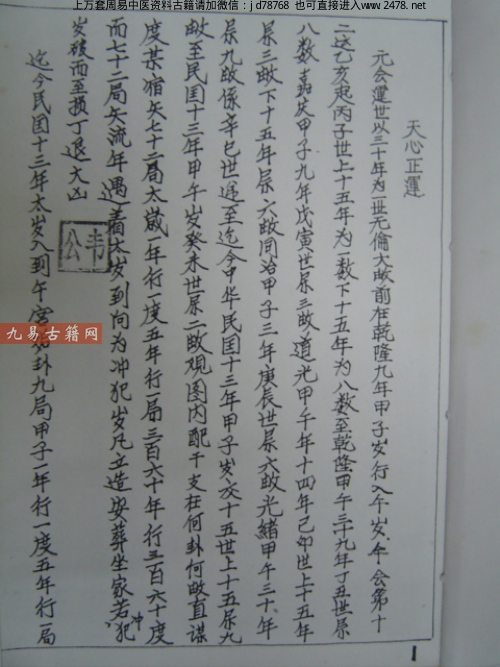 上万套周易中医资料古籍请加微信：jd78768 也可直接进入www.2478.net
天心正運
元会運世以三十年为一世元倫大畝前在乾隆九年甲子岁行入午岁午会第十
二这乙亥起丙子世上十五年为一数下十五年为八数至乾隆甲午三十九年丁丑世属
八数嘉庆甲子九年戊寅世属三畝道光甲午年十四年己卯世上十五年
属三畝下十五年属六畝同治甲子三年庚辰世属六畝光緒甲午三十年
属九畝係辛巳世運至迄今中华民国十三年甲子岁交十五世上十五属九
畝至民国十三年甲午岁癸未世属二畝观图内配干支在何卦何畝直谋
度某宿矢七十二局太歲一年行一度五年行一局三百六十年行三百六十度
而七十二局矢流年遇着太岁到向为冲犯岁凡立造安葬坐家若冲犯
岁破而至损丁退大凶
韦公
迄今民国十三年太岁入到午宫卦九局甲子一年行一度五年行一局
九易古籍网
1